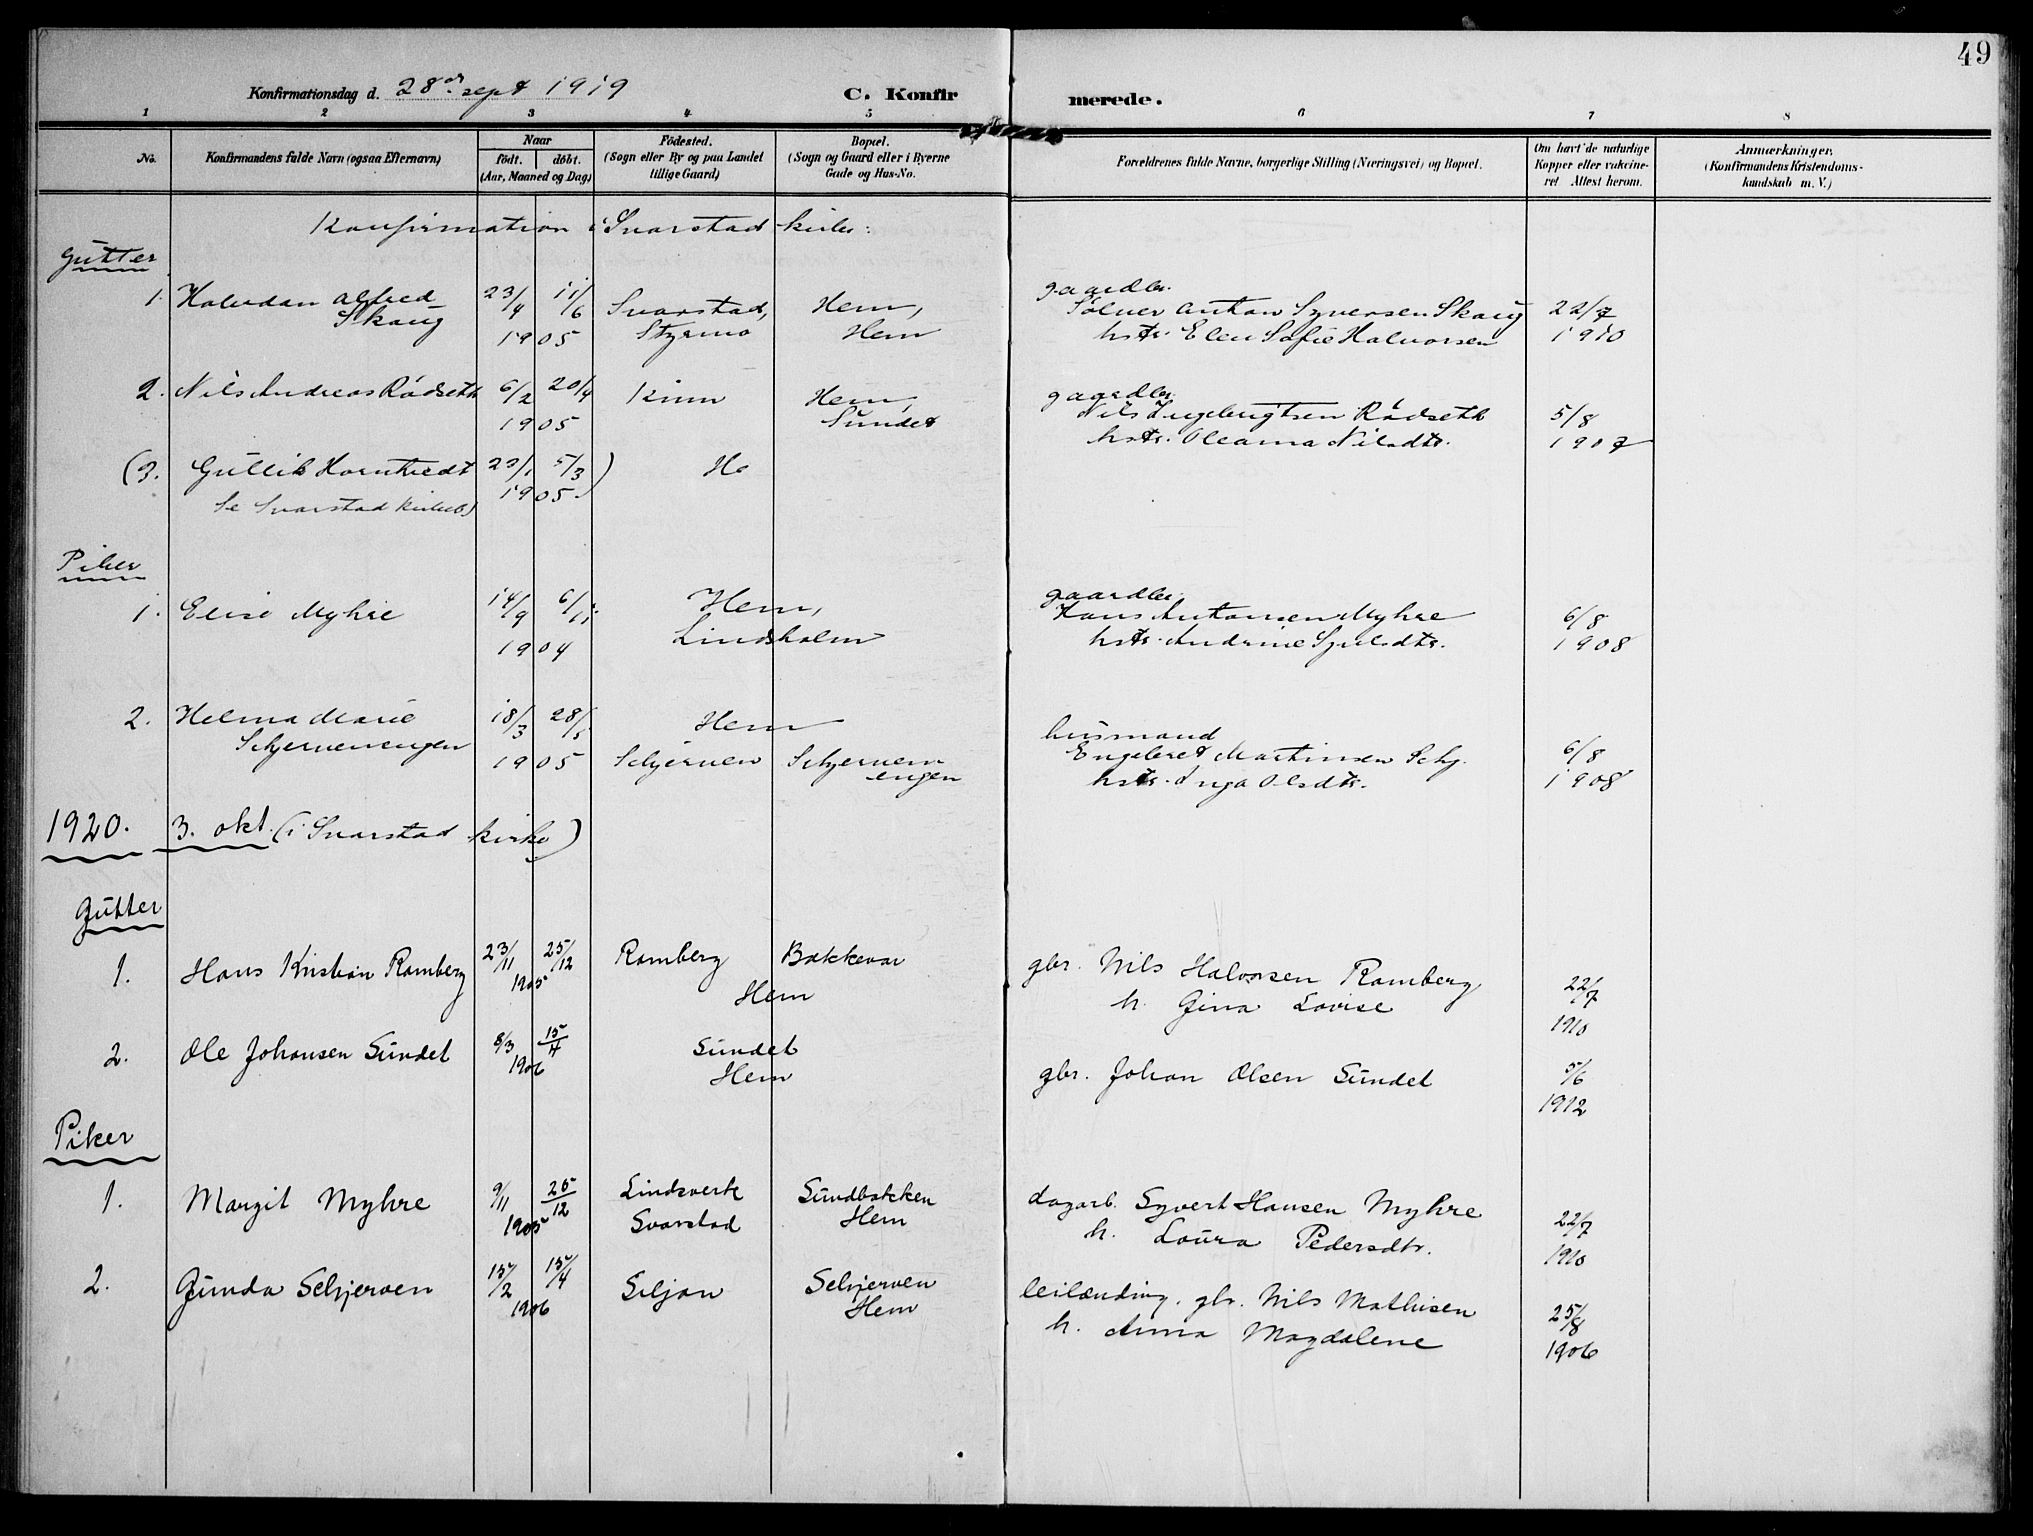 49
Konfirmationsdag d. 28de sept 1919
C. Konfirmerede.
1 2 3 4 5 6 7 8
No.
Konfirmandens fulde Navn (ogsaa Efternavn)
Naar
født. døbt.
(Aar, Maaned og Dag)
Fødested.
(Sogn eller By og paa Landet
tillige Gaard)
Bopæl.
(Sogn og Gaard eller i Byerne
Gade og Hus-No.
Forældrenes fulde Navne, borgerlige Stilling (Næringsvei) og Bopæl.
Om havt de naturlige
Kopper eller vakcine-
ret Attest herom.
Anmærkninger,
(Konfirmandens Kristendoms-
kundskab m. V.)
Konfirmation i Svarstad kirke:
Gutter
1. Halvdan Alfred
Skaug
23/4 11/6
1905
Svarstad,
Styrmo
Hem,
Hem
gaardbr.
Sølver Anton Syversen Skaug
hstr. Elen Sofie Halvorsen
22/7
1910
2. Nils Andreas Rødseth
6/2 20/4
1905
Kinn
Hem,
Sundet
gaardbr.
Nils Ingebrigtsen Rødseth
hstr. Oleana Nilsdtr.
5/8
1907
(3. Gullik Horntvedt 23/1 5/3 )
1905.
He
Se Svarstad kirkeb)
Piker
1. Elise Myhre
14/9 6/11
1904
Hem,
Lindsholm
gaardbr.
Hans Antonsen Myhre
hstr. Andrine Sjulsdtr.
6/8
1908
2. Helma Marie
Schjervenengen
18/3 28/5
1905
Hem
Schjerven
Schjerven-
engen
husmand
Engebret Martinsen Schj.
hstr. Inga Olsdtr.
6/8
1908
1920. 3. okt. (i Svarstad kirke)
Gutter
1. Hans Kristian Ramberg
23/11 25/12
1905
Ramberg
Bakkevar
Hem
gbr. Nils Halvorsen Ramberg
h. Gina Lovise
22/7
1910
2. Ole Johansen Sundet
8/3 15/4
1906
Sundet
Hem
gbr. Johan Olsen Sundet
5/6
1912
Piker
1. Margit Myhre
9/11 26/12
1905
Lindsverk
Svarstad
Sundbakken
Hem
dagarb. Syvert Hansen Myhre
h. Laura Pedersdtr.
22/7
1910
2. Gunda Schjerven
15/2 15/4
1906
Siljan
Schjerven
Hem
leilænding, gbr. Nils Mathisen
h. Anna Magdalene
25/8
1906